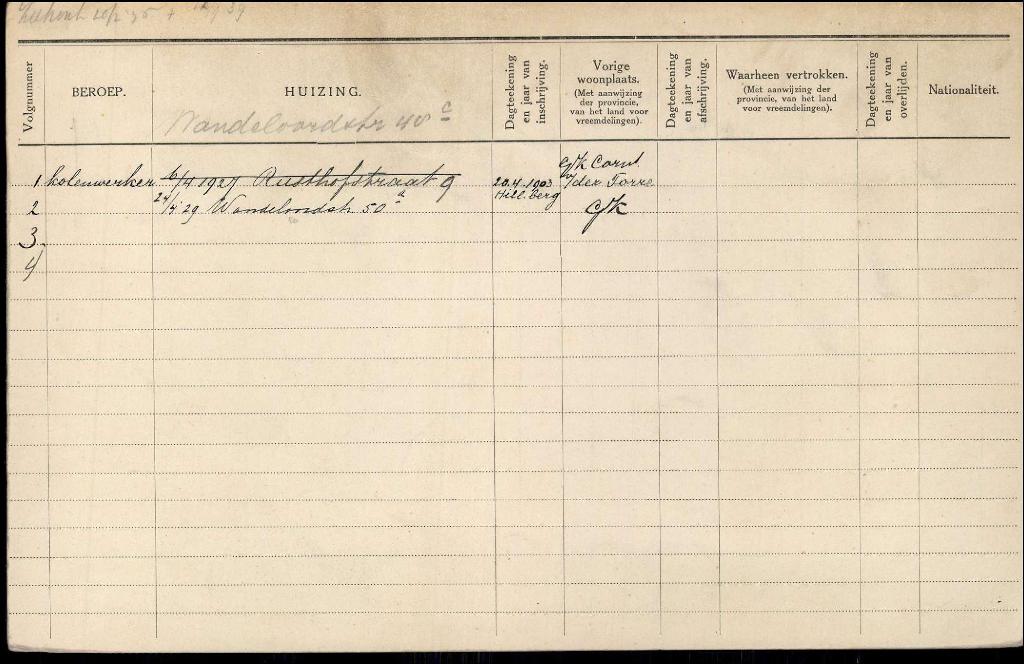 Volgnummer
BEROEP.
HUIZING.
Dagteekening en jaar van inschrijving.
Vorige woonplaats.
(Met aanwijzing der provincie, van het land voor vreemdelingen).
Dagteekening en jaar van afschrijving.
Waarheen vertrokken.
(Met aanwijzing der provincie, van het land voor vreemdelingen).
Dagteekening en jaar van overlijden.
Nationaliteit.
g/k Corn.
1 kolenwerker 6/4 1927 Rusthofstraat 9 20.4.1903 v/der Torre
Hill.berg
2 24/4 29 50 g/k
3
4